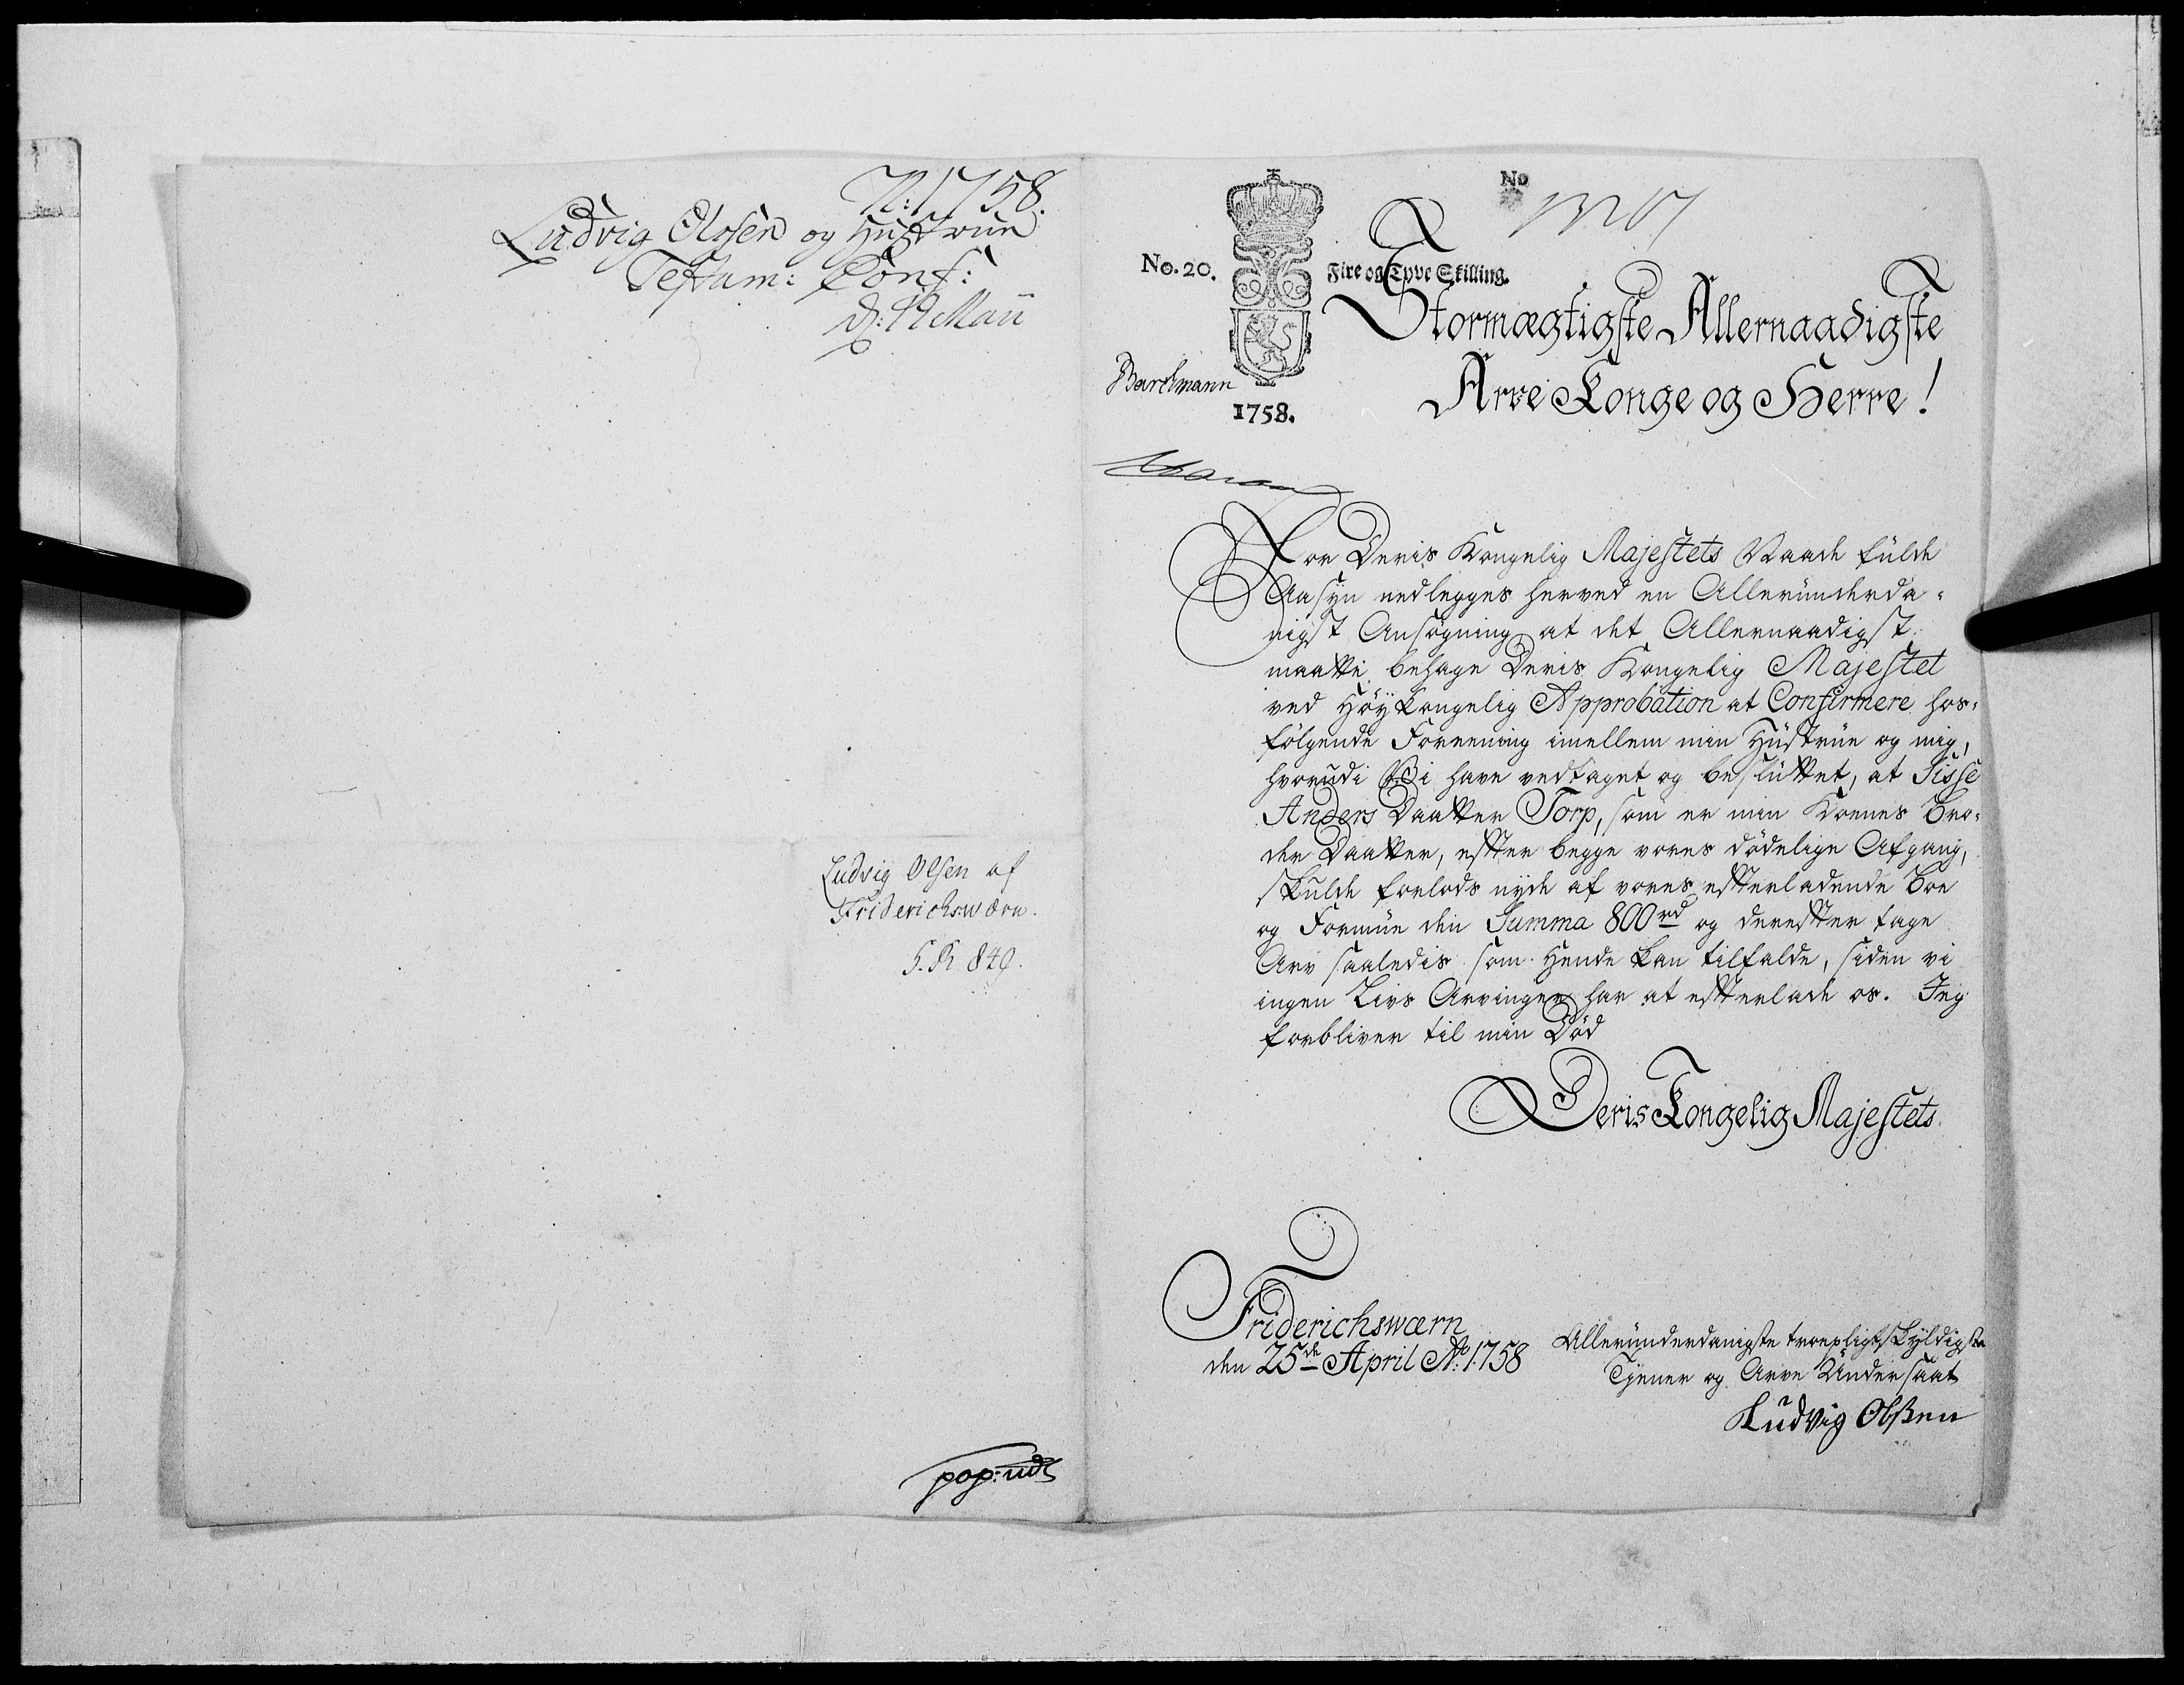 N: 1758.
Ludvig Olssen og Hustrue
Testam: Conf:
d: 19 Maii
Ludvig Olsen af
Friderichswærn.
S. R 849.
pop: uds
No
No. 20.
Fire og Tyve Skilling.
Stormægtigste Allernaadigste
Arve Konge og Herre!
Barchmann
1758.
For Deris Kongelig Majestets Naade fulde
Aasyn nedlegges herved en Allerunderda-
nigst Ansøgning at det Allernaadigst
maatte behage Deris Kongelig Majestet
ved Høykongelig Approbation at Confirmere hos-
følgende Foreening imellem min Hustrue og mig,
hvorudi Vi have vedtaget og besluttet, at Sisse
Anders Daatter Torp, som er min Koenes Bro-
der Daatter, efter begge vores dødelige Afgang,
skulde forlods nyde af vores efterladende Boe
og Formue den Summa 800 rd og derefter tage
Arv saaledis som Hende kan tilfalde, siden vi
ingen Livs Arvinger har at efterlade os. Jeg
forbliver til min Død
Deris Kongelig Majestets
Friderichswærn
den 25de April Ao: 1758
Allerunderdanigste troepligtskyldigste
Tjener og Arve Undersaat
Ludvig Olssen